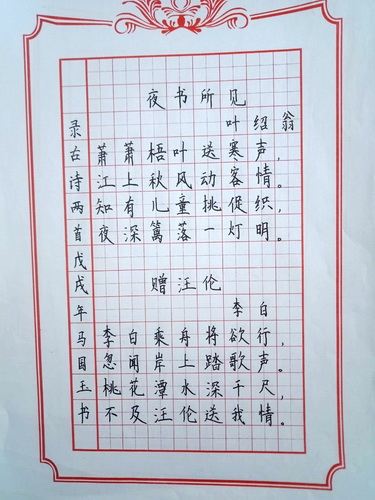 夜书所见
叶绍翁
萧萧梧叶送寒声,
江上秋风动客情。
知有儿童挑促织,
夜深篱落一灯明。
赠汪伦
李白
李白乘舟将欲行,
忽闻岸上踏歌声。
桃花潭水深千尺,
不及汪伦送我情。
录古诗两首戊戌年马国玉书